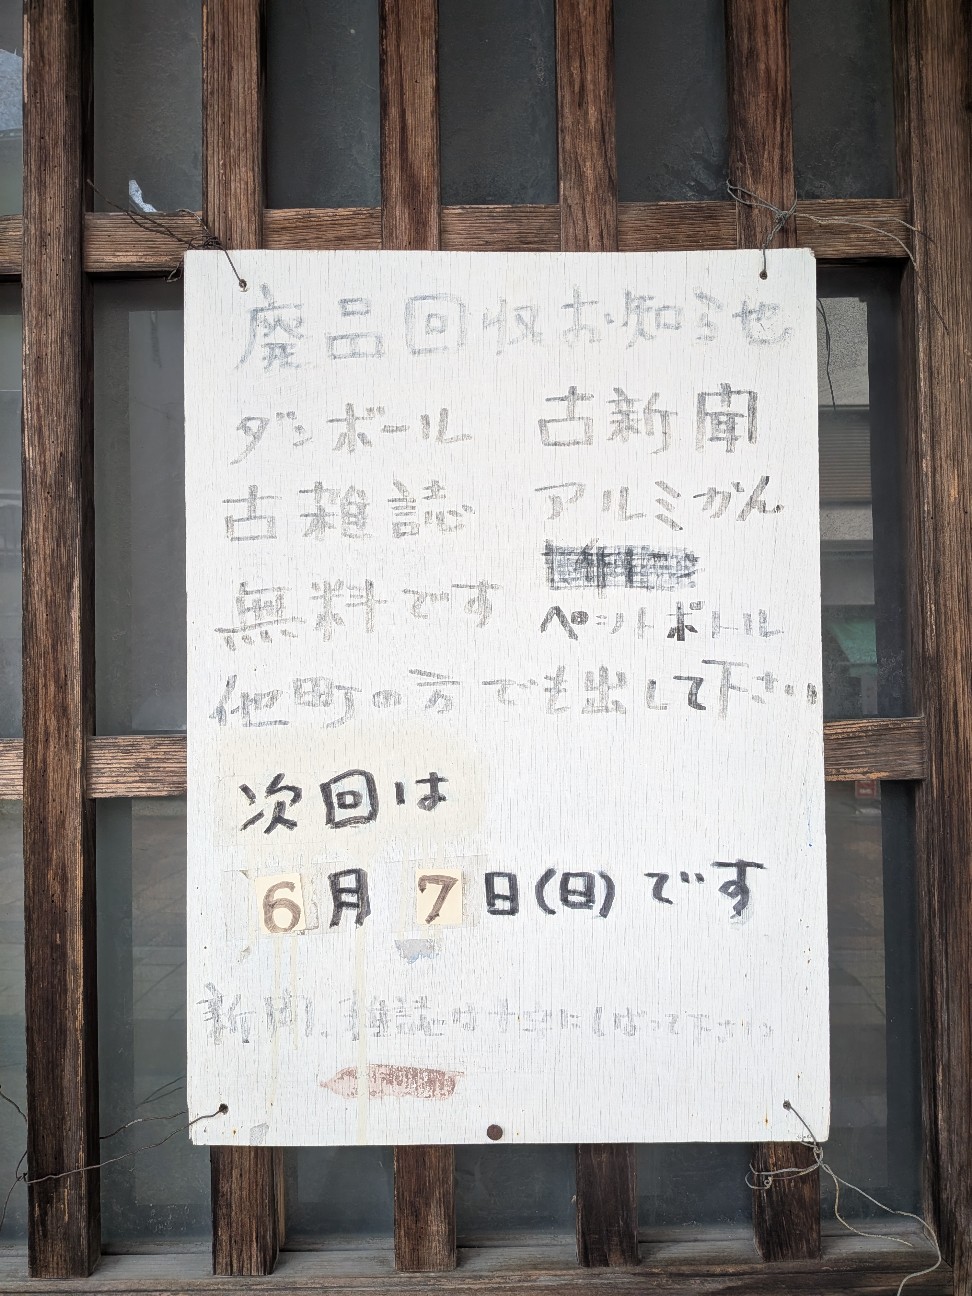 廃品回収お知らせ
ダンボール 古新聞
古雑誌 アルミかん
無料です ペットボトル
他町の方でも出して下さい
次回は
6月7日(日)です
新聞、雑誌は十文にしばって下さい